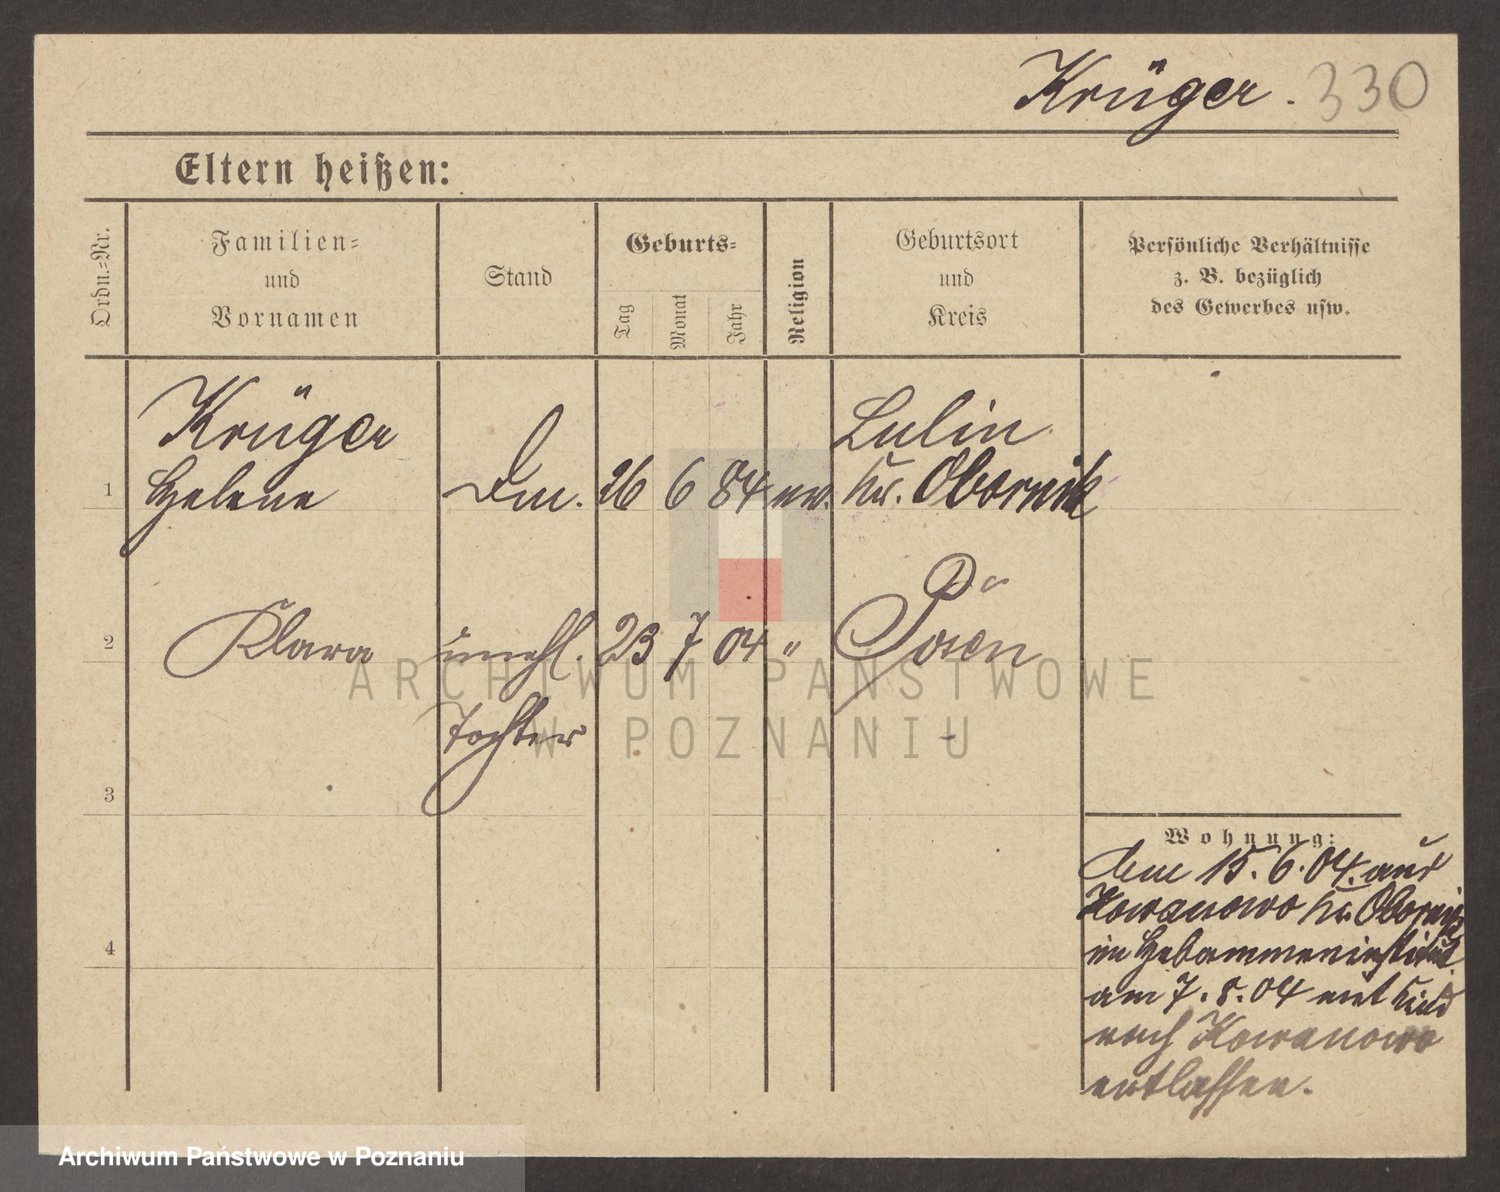 Krüger. 330
Eltern heißen:
Ordn.-Nr.
Familien-
und
Vornamen
Stand
Geburts-
Tag
Monat
Jahr
Religion
Geburtsort
und
Kreis
Persönliche Verhältnisse
z. B. bezüglich
des Gewerbes usw.
Krüger
Lulin
1 Helene 26 6 84 ev. Kr. Obornik
2 Klara unehl. 23 7 04 " Posen
Tochter
3
4
Wohnung:
15.6.04. aus
Kowanowo Kr. Obornik
im Hebammeninstitut
am 7.8.04 mit Kind
nach Kowanowo
entlassen.
ARCHIWUM PAŃSTWOWE
W POZNANIU
Archiwum Państwowe w Poznaniu